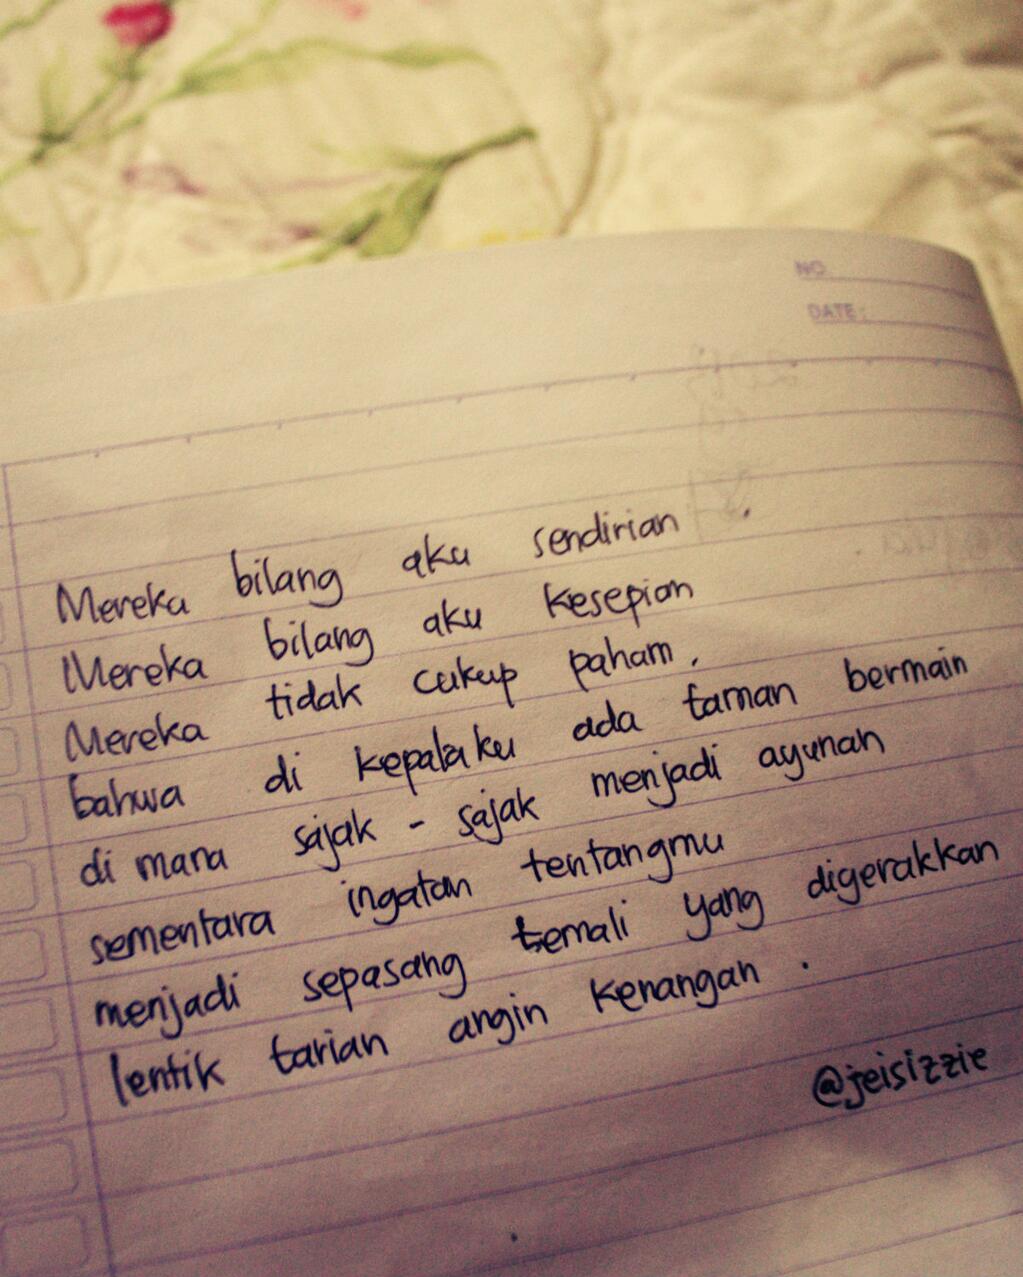 NO.
DATE:
Mereka bilang aku sendirian
Mereka bilang aku kesepian
Mereka tidak cukup paham,
bahwa di kepalaku ada taman bermain
di mana sajak-sajak menjadi ayunan
sementara ingatan tentangmu
menjadi sepasang temali yang digerakkan
lentik tarian angin kenangan.
@jeisizzie